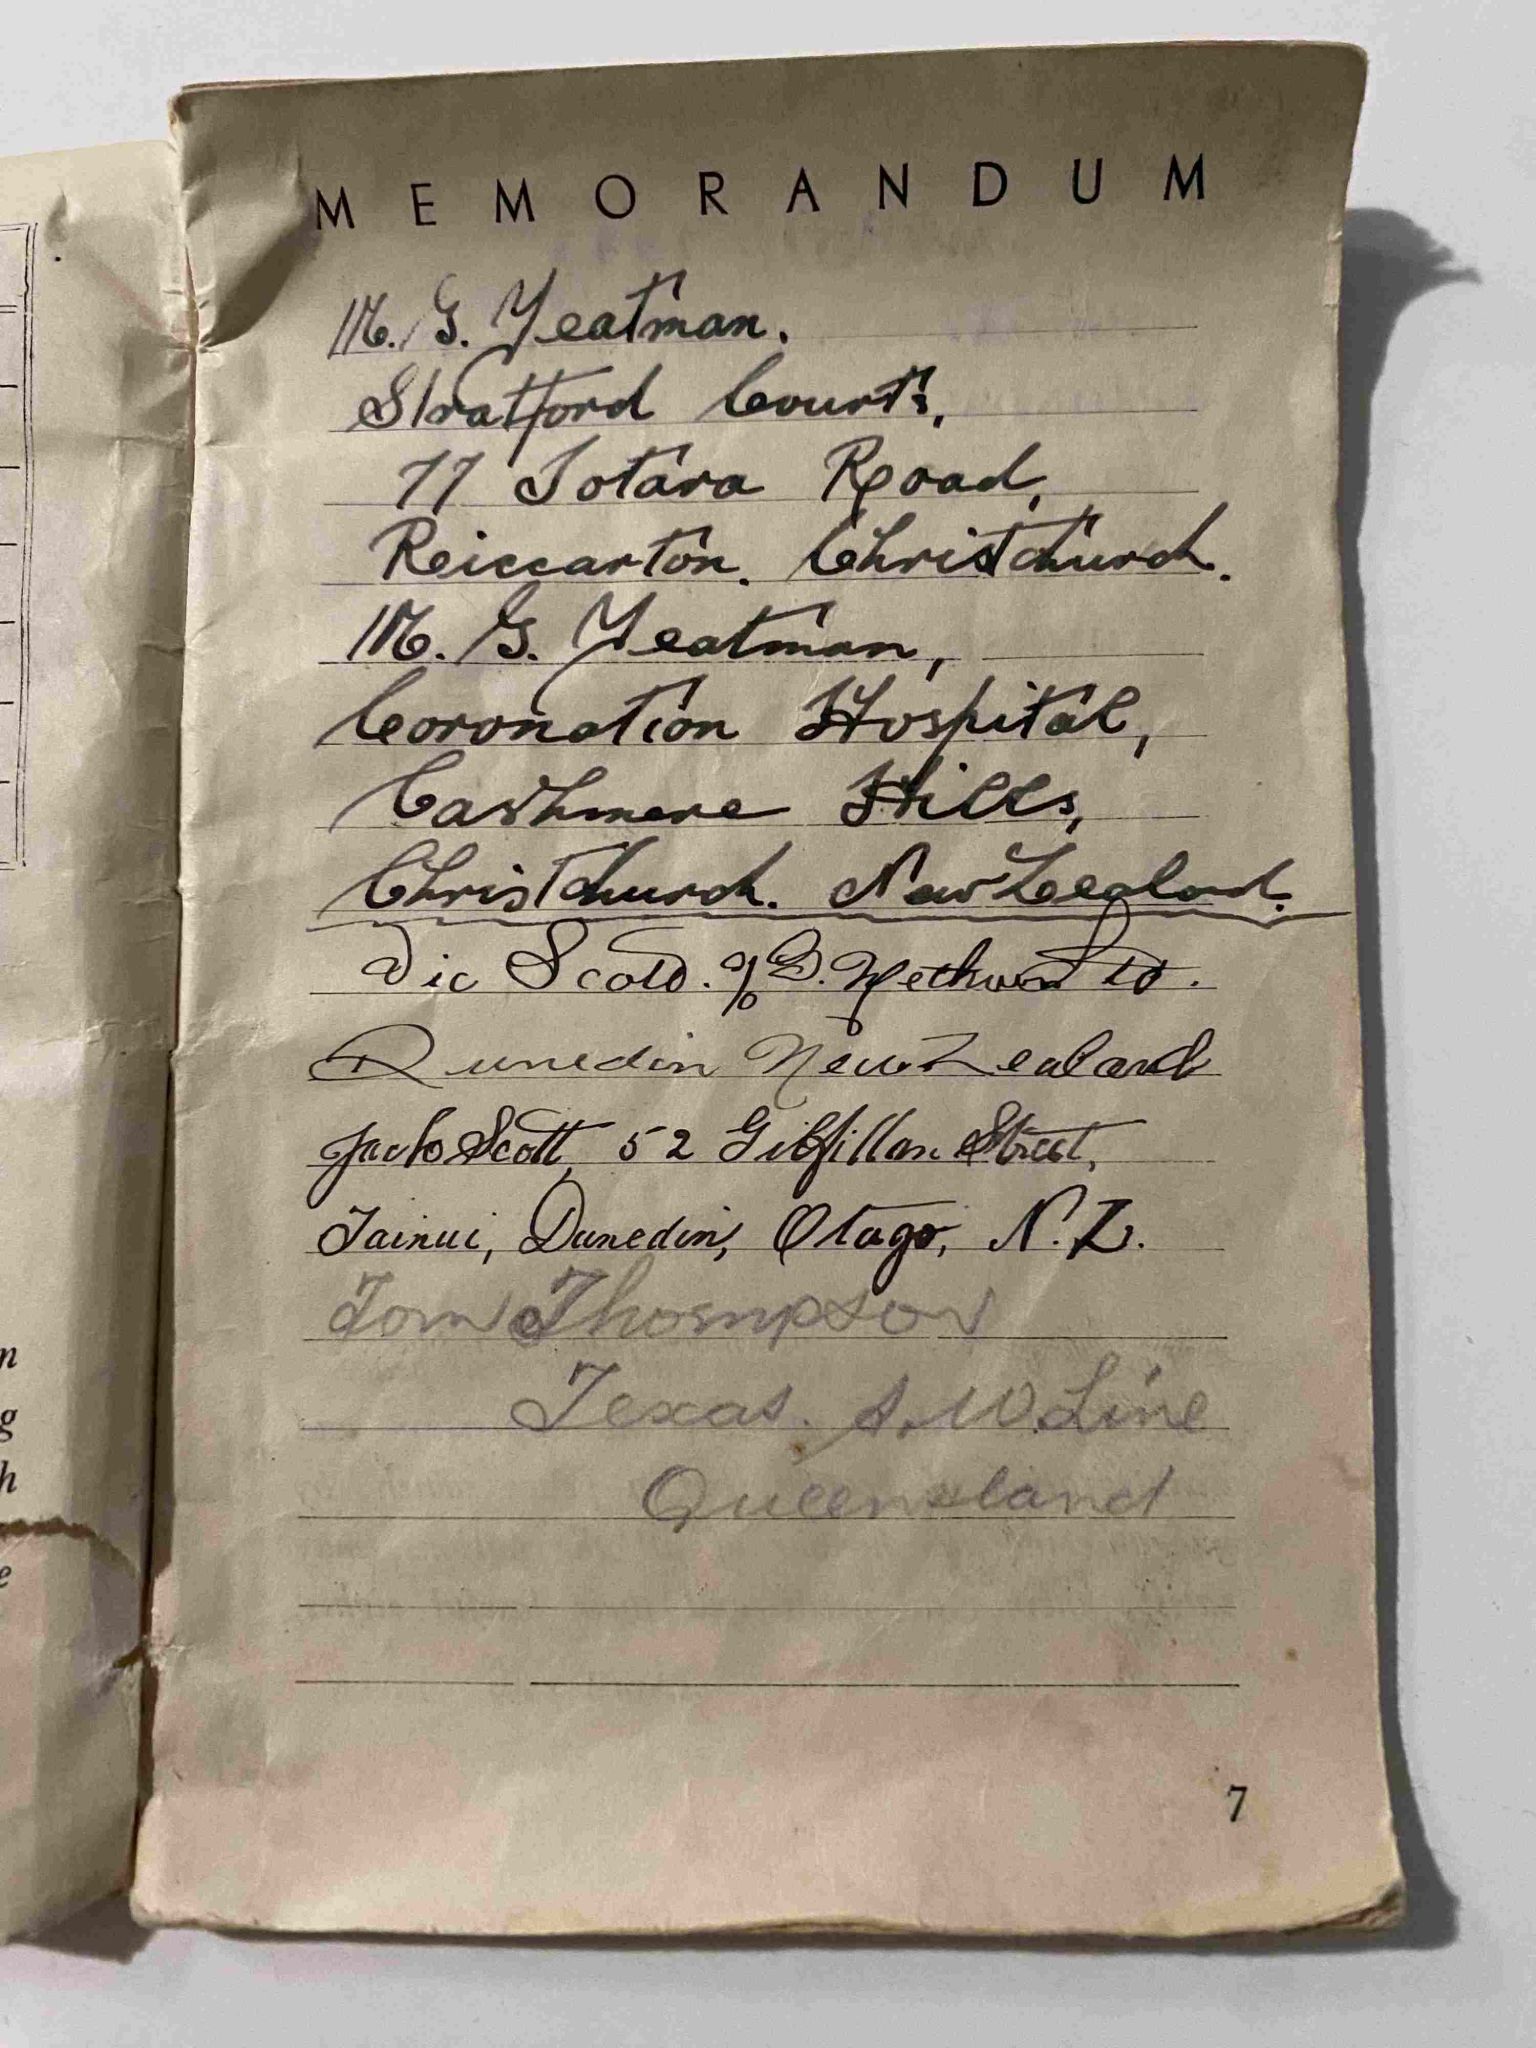 MEMORANDUM
M. G. Yeatman.
Stratford Courts,
77 Totara Road,
Reiccarton. Christchurch.
M. G. Yeatman,
Coronation Hospital,
Cashmere Hills,
Christchurch. New Zealand.
Vic Scott. c/o D. Methven Ltd.
Dunedin New Zealand
Jack Scott, 52 Gilfillan Street,
Tainui, Dunedin, Otago, N.Z.
Tom Thompson
Texas. S.W. Line
Queensland
n
g
h
e
7